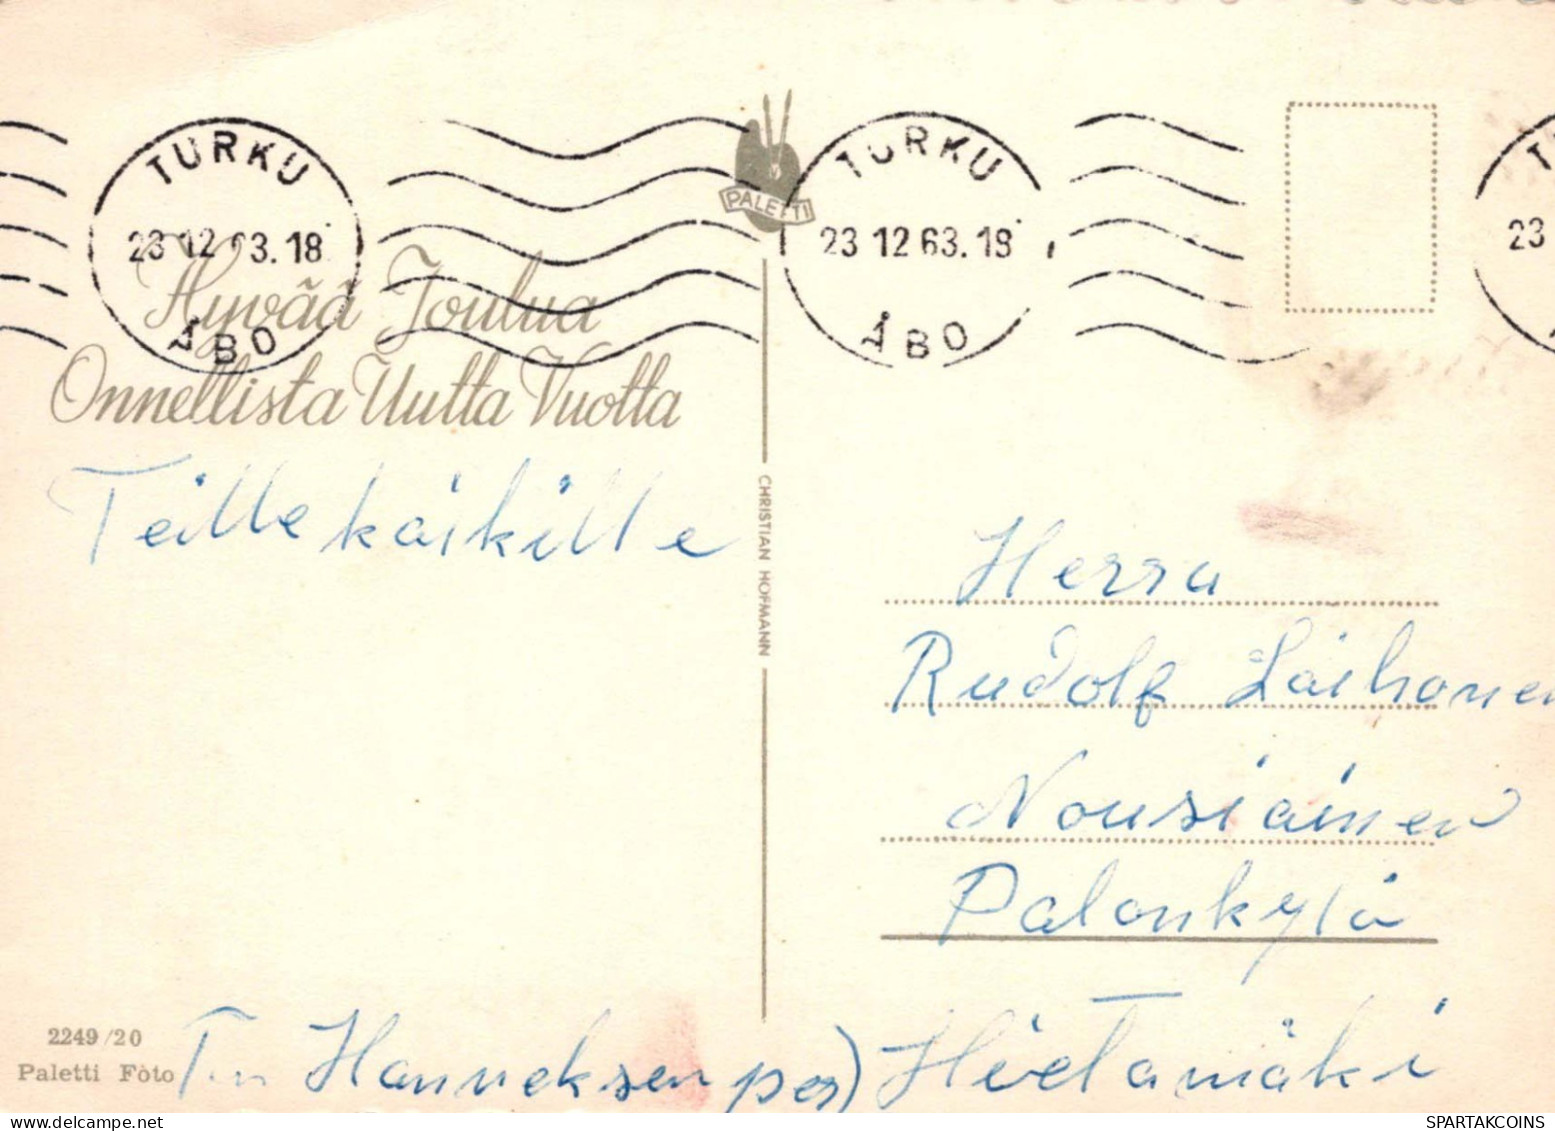 TURKU
23 12 63.18
ÅBO
PALETTI
TURKU
23 12 63.18
ÅBO
23
Hyvää Joulua
Onnellista Uutta Vuotta
Teille kaikille
CHRISTIAN HOFMANN
Herra
Rudolf Laihonen
Nousiainen
Palonkylä
Hietamäki
2249/20
Paletti Fòto
Hanneksen per)
SPARTAKCOINS